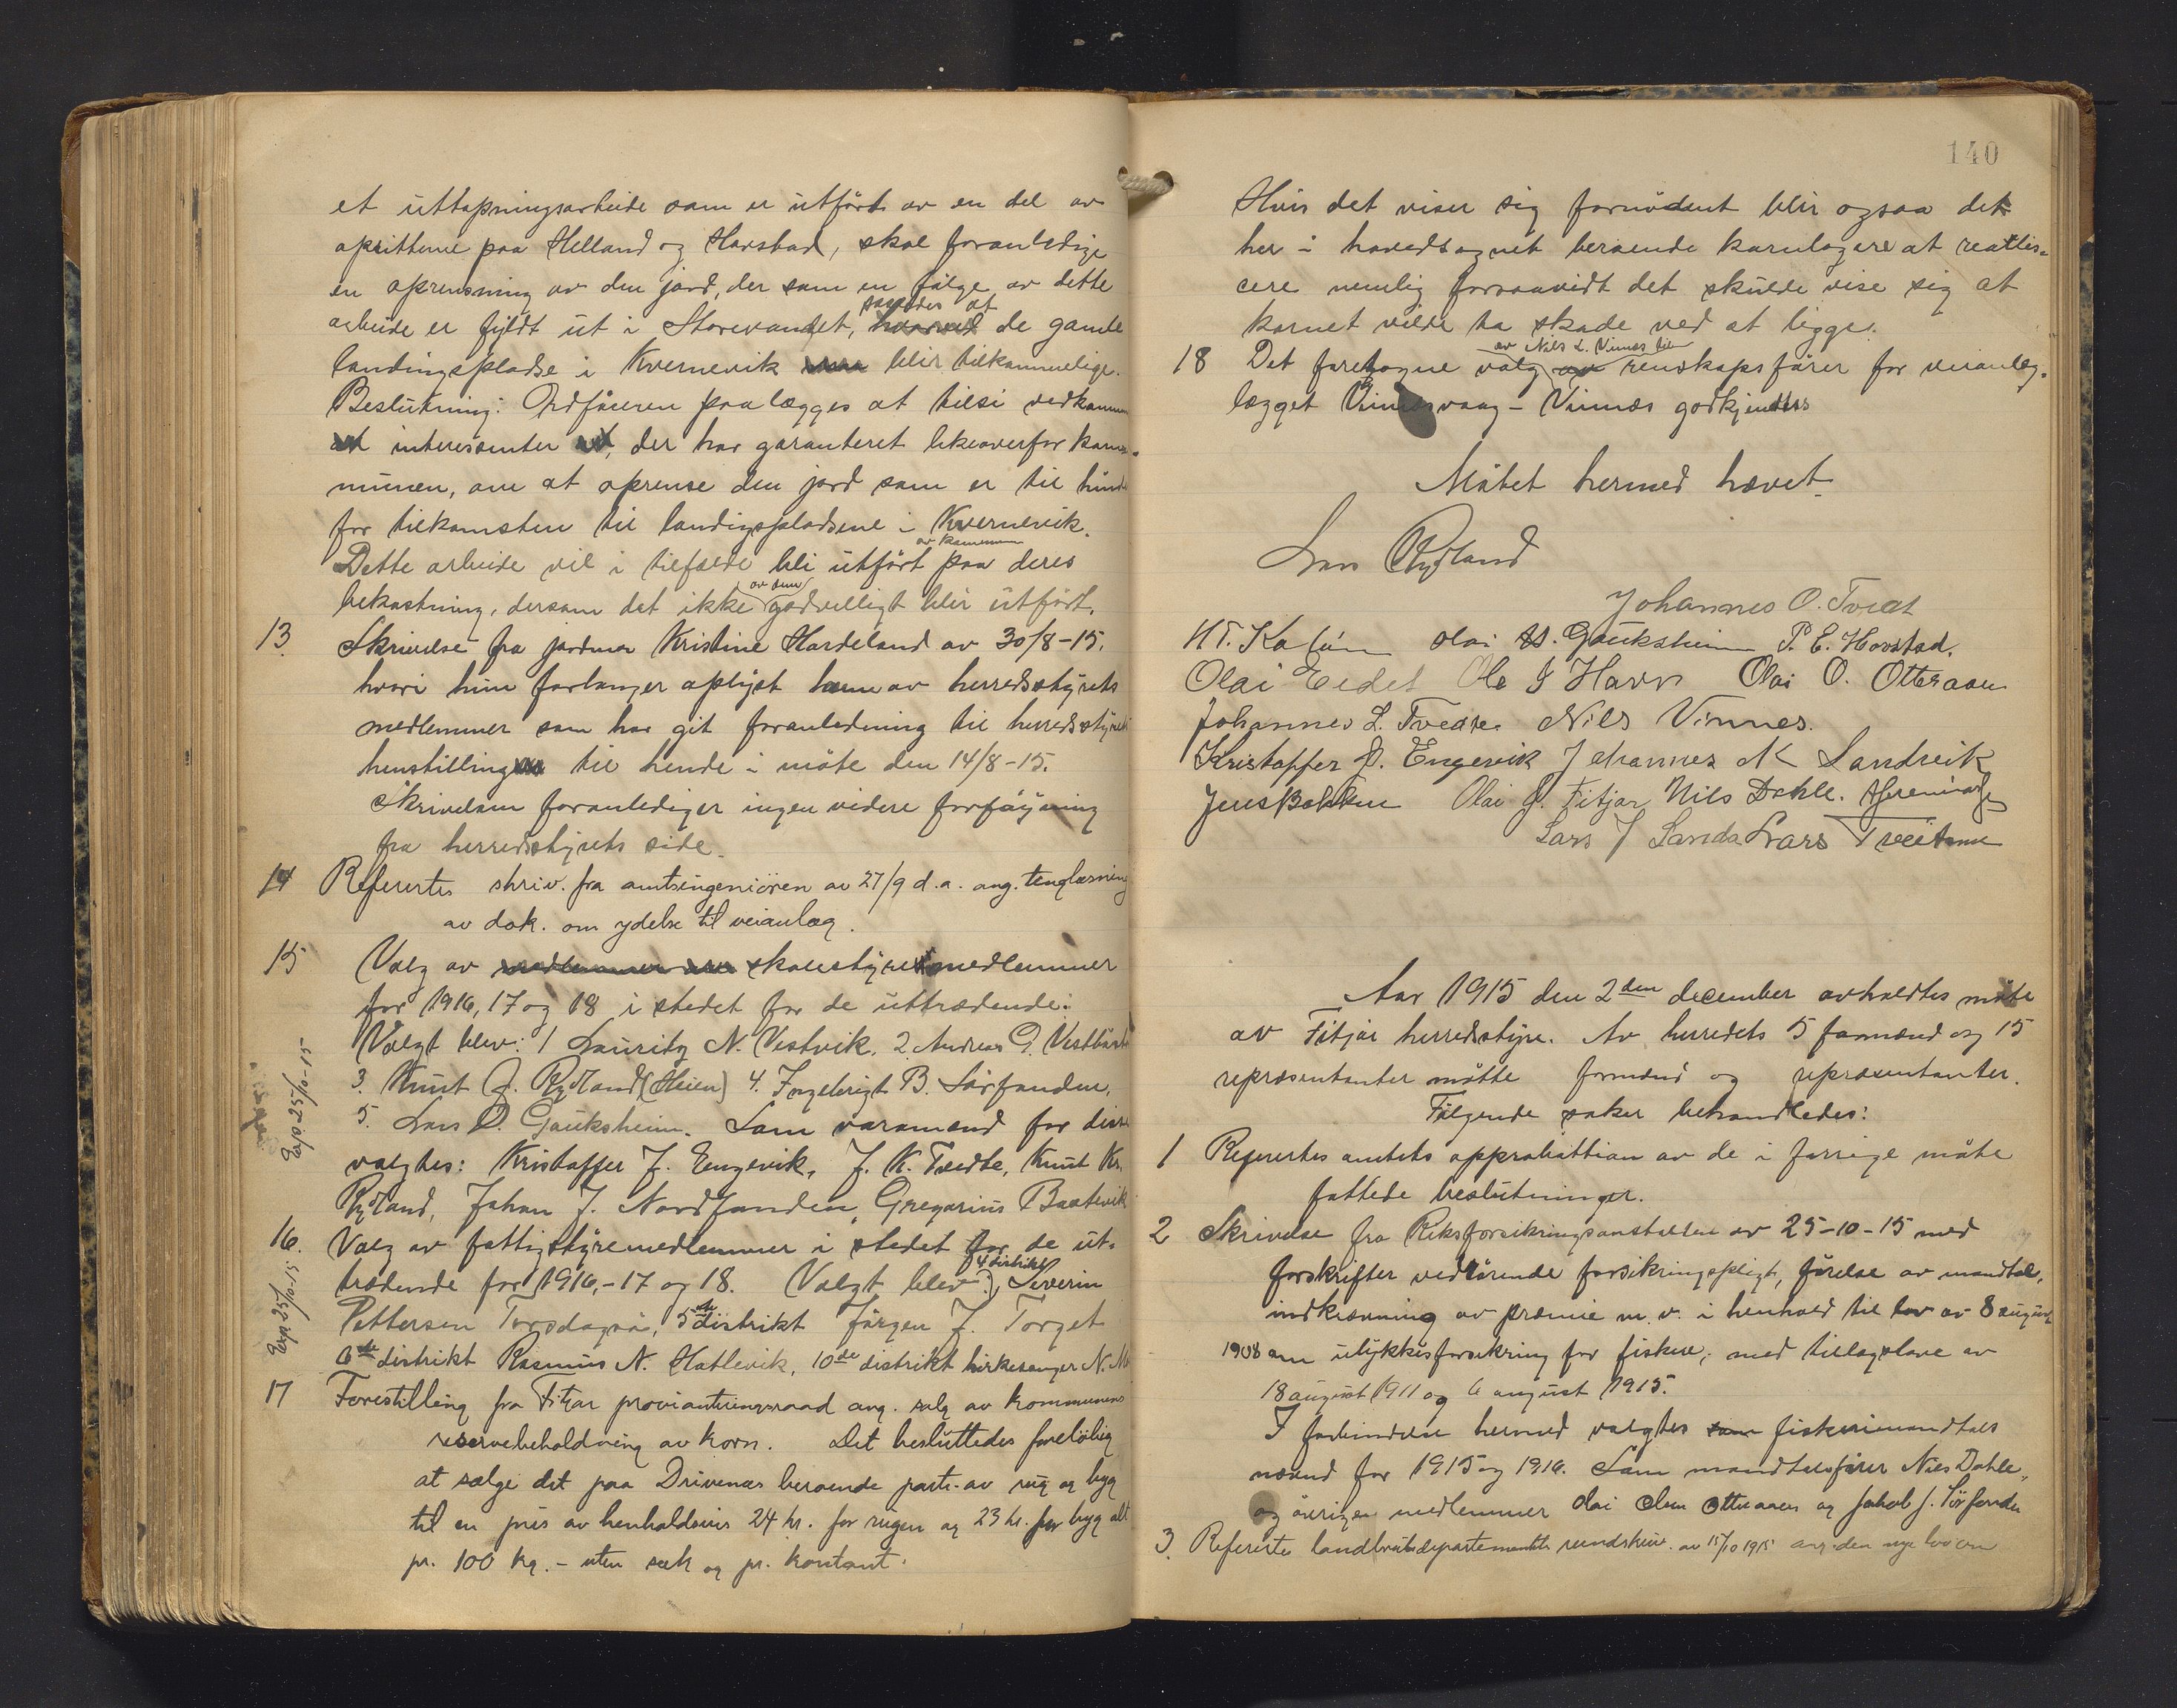 et uttapningsarbeide som er utført av en del av
opsitterne paa Helland og Havstad, skal foranledige
en oprensning av den jord, der som en følge av dette
saaledes at
arbeide er fyldt ut i Storevandet, hvorved de gamle
landingspladse i Kvernevik blir tilkommelige.
Beslutning: Ordføreren paalægges at tilsi vedkomm
interessenter der har garanteret likeoverfor kom-
munen, om at oprense den jord som er til hind
for tilkomsten til landigspladsene i Kvernevik.
av kommunen
Dette arbeide vil i tilfælde bli utført paa deres
av dem
bekostning, dersom det ikke godvilligt blir utført.
13. Skrivelse fra jordmor Kristine Hardeland av 30/8-15.
hvori hun forlanger oplyst hvem av herredsstyrets
medlemmer som har git foranledning til herredsstyrets
henstilling til hende i møte den 14/8-15.
Skrivelsen foranlediger ingen videre forføining
fra herredsstyrets side.
14 Refertes skriv. fra amtsingeniøren av 27/9 d.a. ang. tinglæsning
av dok. om ydelse til veianlæg.
15 Valg av medlemmer skolestyremedlemmer
for 1916, 17 og 18 i stedet for de uttrædende:
Valgt blev: 1 Lauritz N. Vestvik. 2. Andreas G. Vestbøst
3. Knut J. Rydland (Heien) 4. Ingebrigt B. Sørfonden.
5. Lars O. Gauksheim. Som varamænd for disse
valgtes: Kristoffer J. Engevik, J. K. Tvedte, Knut Kr.
Rydland, Johan J. Nordfonden, Gregorius Baatevik
Exp 25/10-15
16. Valg av fattigstyremedlemmer i stedet for de ut-
4 distrikt
trædende for 1916,-17 og 18. Valgt blev: Severin
Pettersen Torsdagsø, 5te distrikt Jørgen J. Torget
6te distrikt Rasmus N. Hatlevik, 10de distrikt kirkesanger N. M
Exp 25/10-15
17 Forestilling fra Fitjar provianteringsraad ang. salg av kommunens
reservebeholdning av korn. Det besluttedes foreløbig
at sælge det paa Drivenæs beroende parti av rug og byg
til en pris av henholdsvis 24 kr. for rugen og 23 kr. for byg alt
pr. 100 kg. - uten sæk og pr. kontant.
140
Hvis det viser sig fornødent blir ogsaa det
her i hovedsognet beroende kornlager at realis-
cere nemlig forsaavidt det skulde vise sig at
kornet vilde ta skade ved at ligge.
av Nils L. Vinnes til
18 Det foretagne valg av renskapsfører for veianleg-
lægget Vinnesvaag - Vinnæs godkjendtes
Møtet hermed hævet.
Lars Rydland
Johannes O. Tveit
Olai H. Gauksheim P. E. Havstad.
Olai Eidet Ole J Havn Olai O. Otteraaen
Johannes L. Tvedte Nils Vinnes.
Kristoffer J. Engevik Johannes N Landvik
Jens Bakken Olai J. Fitjar Nils Dahle.
Lars J Sanda Lars Tveitane
Aar 1915 den 2den december avholdtes møte
av Fitjar herredsstyre. Av herredets 5 formænd og 15
repræsentanter møtte formænd og repræsentanter.
Følgende saker behandledes:
1 Refertes amtets approbattion av de i forrige møte
fattede beslutninger.
2 Skrivelse fra Riksforsikringsanstalten av 25-10-15 med
forskrifter vedrørende forsikringspligt, førelse av mandtal,
indkrævning av præmie m.v. i henhold til lov av 8 august
1908 om ulykkesforsikring for fiskere, med tillægslove av
18 august 1911 og 6 august 1915.
I forbindelse hermed valgtes som fiskerimandtals
nævnd for 1915 og 1916. Som mandtalsfører Nils Dahle,
og øvrige medlemmer Olai Olsen Otteraaen og Jakob J. Sørfonden
3. Referte landbruksdepartementets rundskriv. av 15/10 1915 ang. den nye lov om